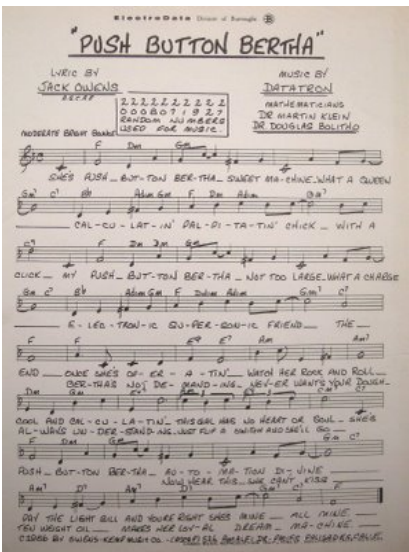 ElectroData Division of Burroughs B
"PUSH BUTTON BERTHA"
LYRIC BY
JACK OWENS
ASCAP
MUSIC BY
DATATRON
MATHEMATICIANS
DR. MARTIN KLEIN
DR. DOUGLAS BOLITHO
2 2 2 2 2 2 2 2 2 2
0 0 0 8 0 7 1 9 2 7
RANDOM NUMBERS
USED FOR MUSIC.
MODERATE BRIGHT BOUNCE
F Dm Gm
SHE'S PUSH_ BUT-TON BER-THA_ SWEET MA-CHINE_ WHAT A QUEEN
Gm7 C7 Bb Adim Gm F Dm Adim Gm7
CAL-CU-LAT-IN' PAL-PI-TA-TIN' CHICK_ WITH A
C7 F Dm Dm Gm
CLICK_ MY PUSH_ BUT-TON BER-THA_ NOT TOO LARGE_ WHAT A CHARGE
Gm C7 Bb Adim Gm F Adim Gm7 C7
E-LEC-TRON-IC SU-PER-SON-IC FRIEND_ THE_
F F E9 E7 Am Am7
END_ ONCE SHE'S OP-ER-A-TIN'_ WATCH HER ROCK AND ROLL_
BER-THA'S NOT DE-MAND-ING_ NEV-ER WANTS YOUR DOUGH_
Dm Gm
COOL AND CAL-CU-LA-TIN'_ THIS GAL HAS NO HEART OR SOUL_ SHE'S
AL-WAYS UN-DER-STAND-ING_ JUST FLIP A SWITCH AND SHE'LL GO_
F Dm Gm Gm7 C7
PUSH_ BUT-TON BER-THA_ AU-TO-MA-TION DI-VINE_
NOW HEAR THIS_ SHE CAN'T KISS
Am7 D7 Am7 D7 Gm7 C7 F
PAY THE LIGHT BILL AND YOU'RE RIGHT SHE'S MINE_ ALL MINE_
TEN WEIGHT OIL_ MAKES HER LOY-AL DREAM MA-CHINE_
OWENS-KEMP MUSIC CO.